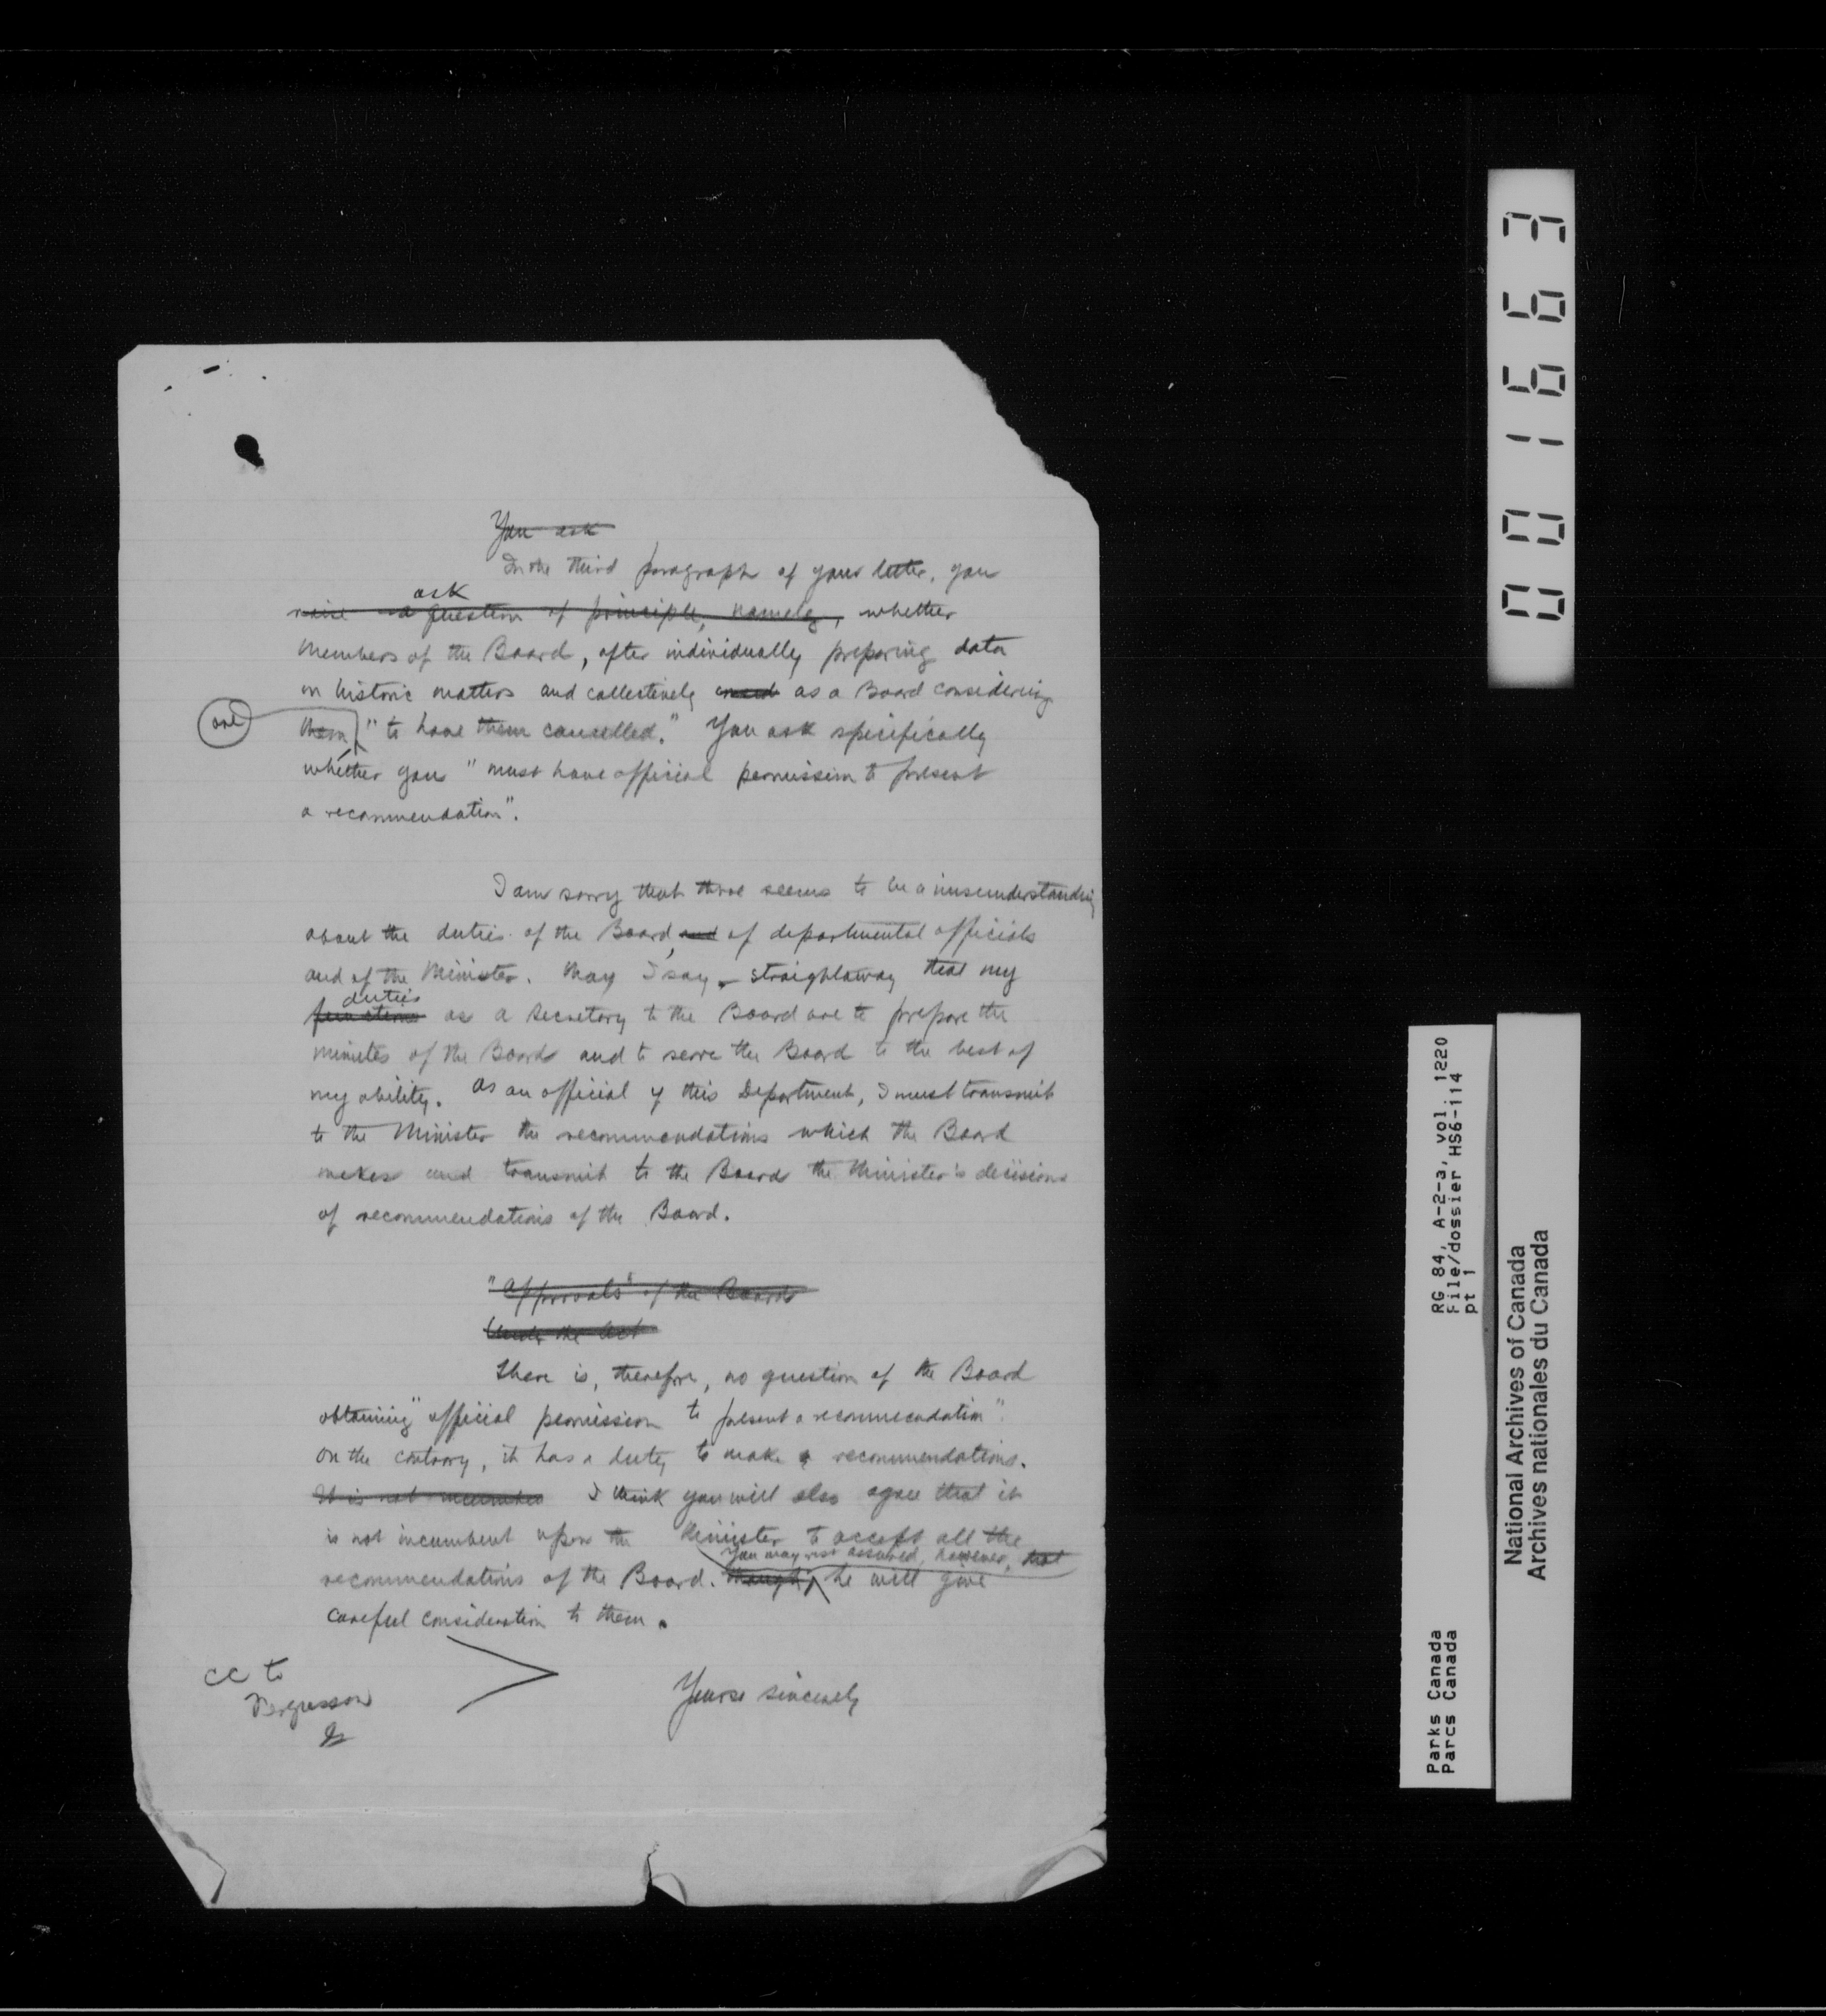 You ask
In the third paragraph of your letter, you
ask
raise a question of principle, namely, whether
members of the Board, after individually preparing data
on historic matters and collectively as a Board considering
are
them, "to have them cancelled." You ask specifically
whether you "must have official permission to present
a recommendation".
I am sorry that there seems to be a misunderstanding
about the duties of the Board, and of departmental officials
and of the Minister. May I say straightaway that my
duties
functions as a Secretary to the Board are to prepare the
minutes of the Board and to serve the Board to the best of
my ability. As an official of this Department, I must transmit
to the Minister the recommendations which the Board
makes and transmit to the Board the Minister's decisions
of recommendations of the Board.
"Approvals" of the Board
Under the Act
There is, therefore, no question of the Board
obtaining "official permission to present a recommendation".
On the contrary, it has a duty to make a recommendations.
It is not incumbent I think you will also agree that it
is not incumbent upon the Minister to accept all the
You may rest assured, however, that
recommendations of the Board. though, he will give
careful consideration to them.
cc to
Fergusson
Yours sincerely
001663
RG 84, A-2-a, vol. 1220
File/dossier HS6-114
pt 1
Parks Canada
Parcs Canada
National Archives of Canada
Archives nationales du Canada